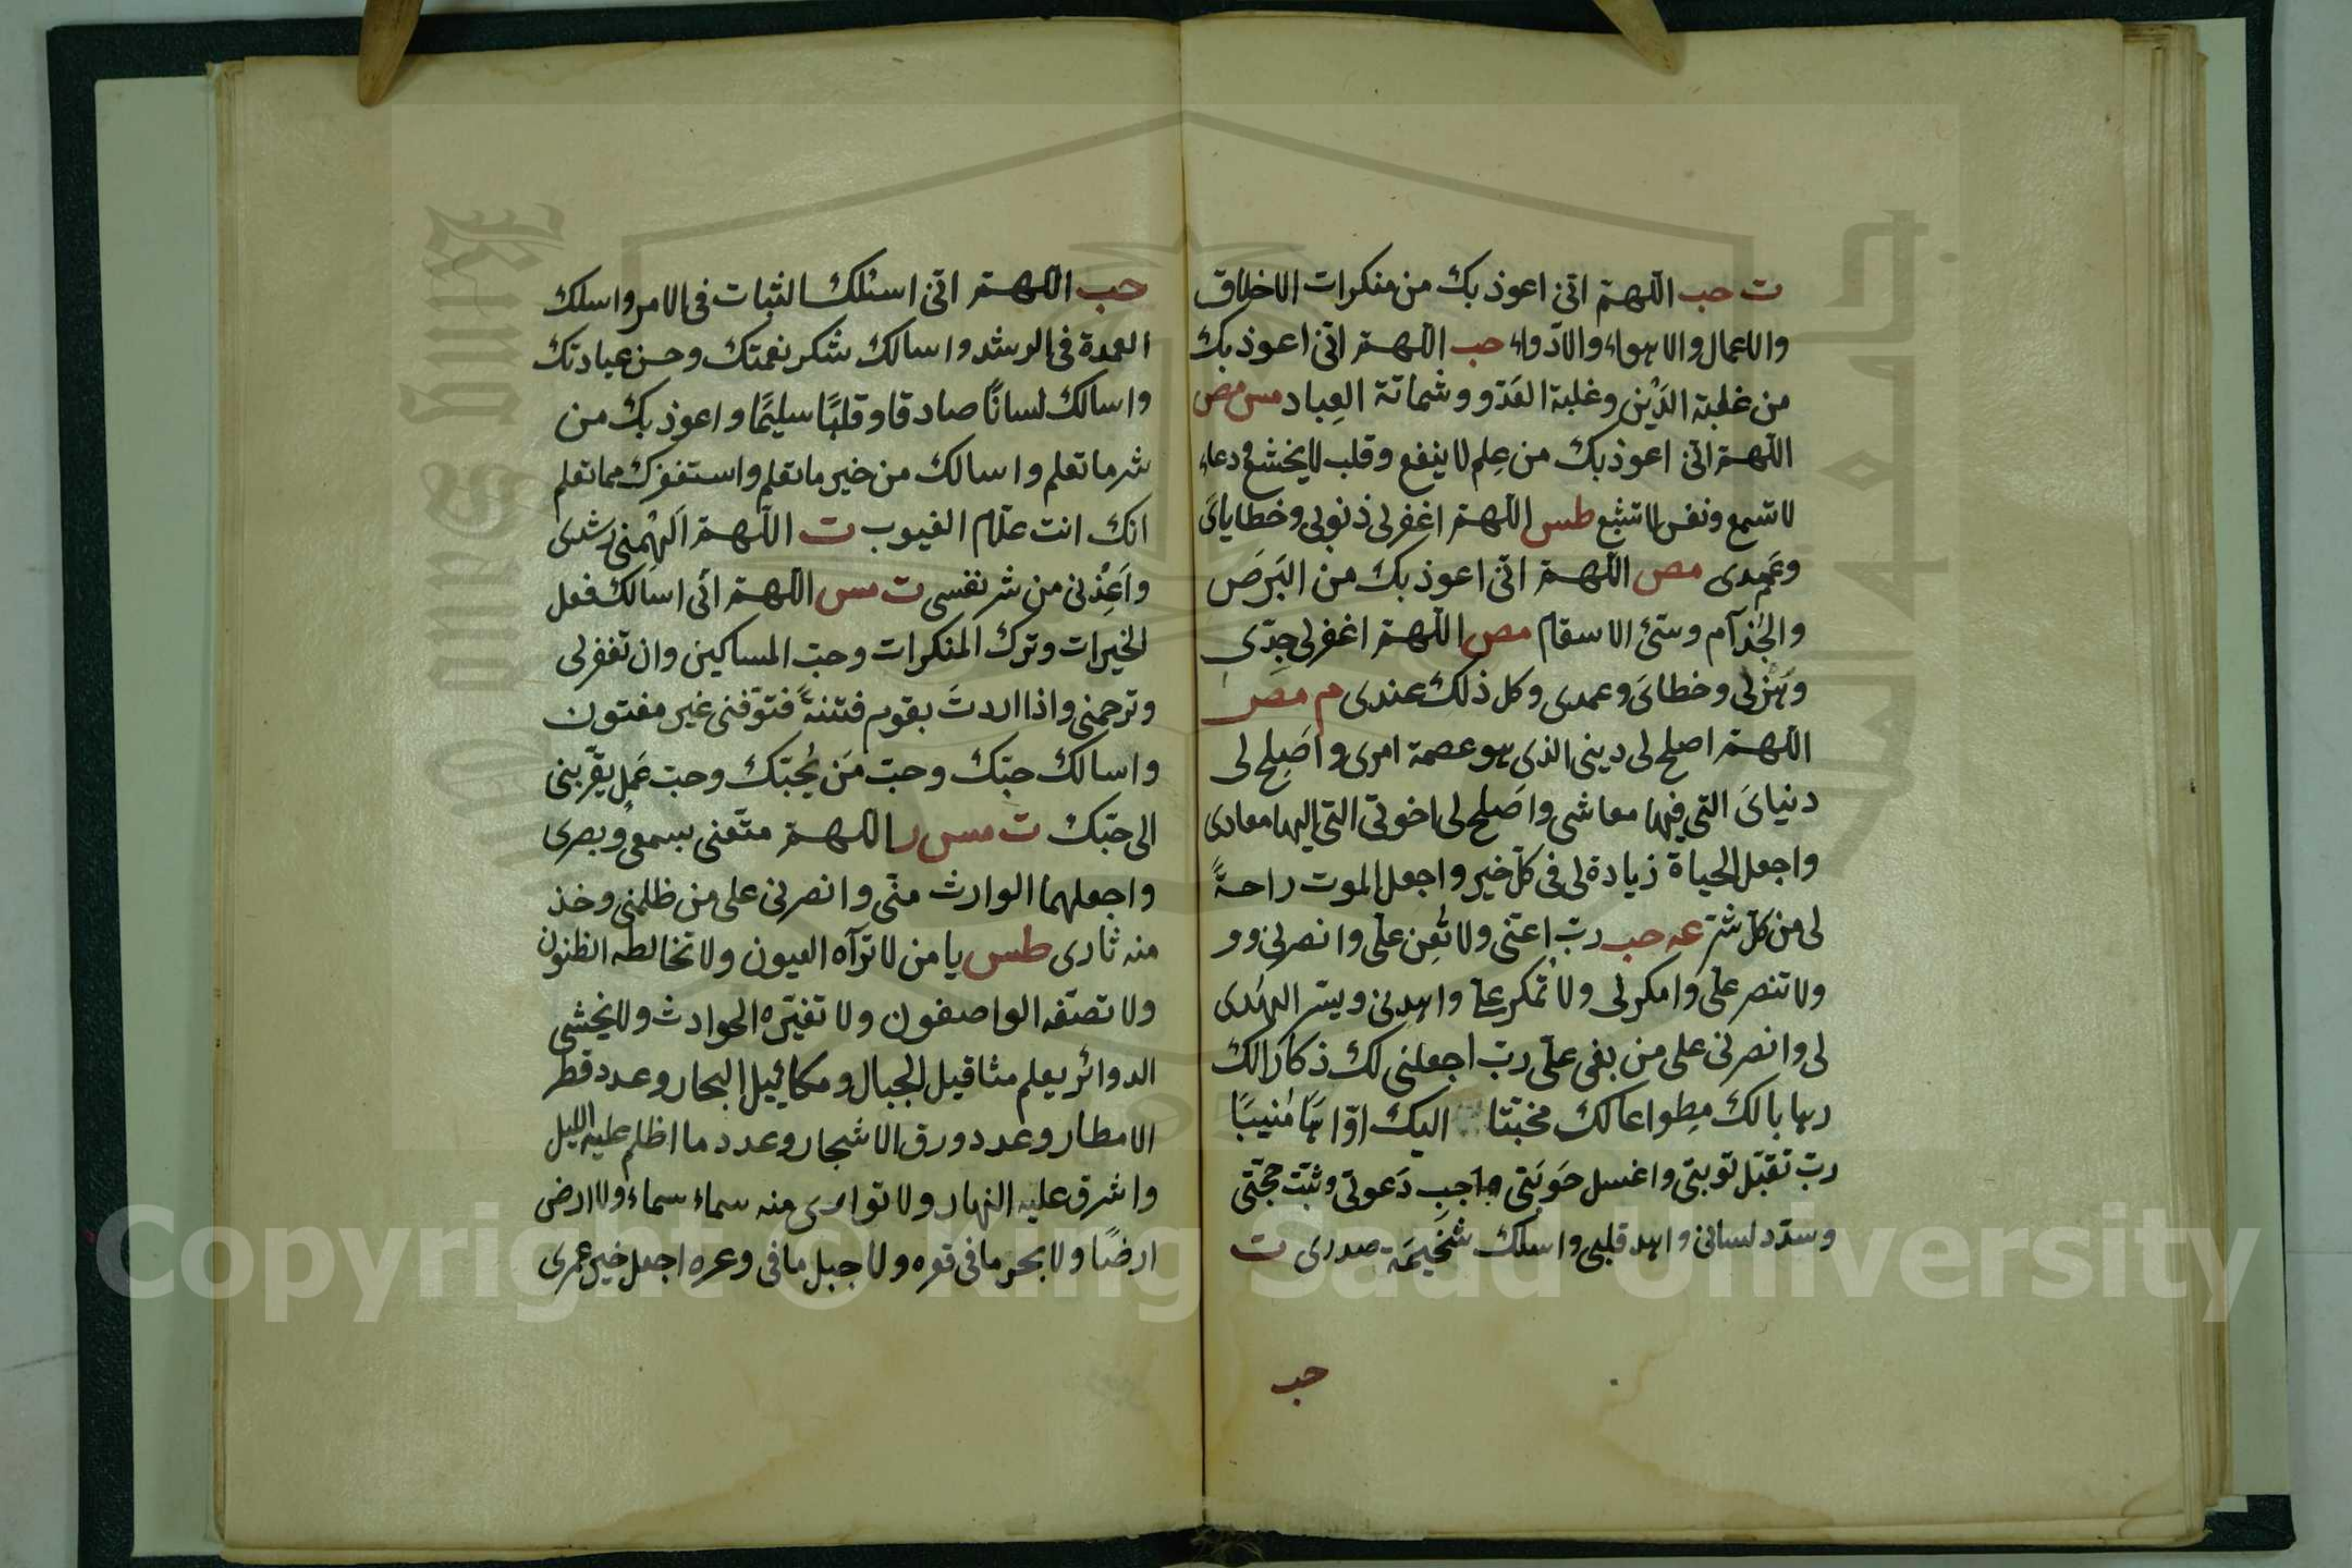 ت حب اللهم انى اعوذ بك من منكرات الاخلاق
والاعمال والاهواء والادواء حب اللهم انى اعوذ بك
من غلبة الدَّيْن وغلبة العَدوّ وشماتة العِباد مس مص
اللهم انى اعوذ بك من عِلم لا ينفع وقلب لا يخشع ودعاء
لا تسمع ونفس لا تشبع طس اللهم اغفرلى ذنوبى وخطاياى
وعَمِدى مص اللهم انى اعوذ بك من البَرَص
والجُذآم وسَئ الاسقام مص اللهم اغفرلى جِدّى
وهَزْلى وخطاىَ وعمدى وكل ذلك عندى م مص
اللهم اصلح لى دينى الذى هو عصمة امرى واَصِلح لى
دنياىَ التى فيها معاشى واَصَلح لى اخرتى التى اليها معادى
واجعل الحياة زيادة لى فى كلّ خير واجعل الموت راحةً
لى من كلّ شرّ عه حب ربّ اعنّى ولا تُعِن علىّ وانصرنى وو
ولا تنصر علىّ وامكرلى ولا تمكر علىّ واهدنى ويسّر الهُدى
لى وانصرنى على من بغى علىّ ربّ اجعلنى لك ذكارا لك
رهابا لكَ مِطواعا لك مخبتا اليك اوّاهًا مُنيبًا
ربّ تقبّل توبتى واغسل حَوبَتى واجب دَعوتى وثبّت حجّتى
وسدّد لسانى واهد قلبى واسلك سَخيمَة صدرى ت
حب
حب اللهم انى اسئلك الثبات فى الامر واسلك
العمدة فى الرشد واسالك شكر نعمتك وحسن عبادتك
واسالك لسانًا صادقا وقلبًا سليمًا واعوذ بك من
شر ما تعلم واسالك من خير ما تعلم واستغفرك مما تعلم
انك انت علّام الغيوب ت اللهم اَلْهِمنى رشدى
واَعِذْنى من شر نفسى ت مس اللهم انى اسالك فعل
الخيرات وترك المنكرات وحبّ المساكين وان تغفرلى
وترحمنى واذا اردتَ بقوم فتنةً فتوّفنى غير مفتون
واسالك حبّك وحبّ مَن يُحبّك وحبّ عَمِل يقرّبنى
الى حبّك ت مس ر اللهم متّعنى بسمعى وبصرى
واجعلهما الوارث منّى وانصرنى على من ظلمنى وخذ
منه ثارى طس يا من لا ترآه العيون ولا تخالطه الظنون
ولا تصفه الواصفون ولا تغيّره الحوادث ولا يخشى
الدوائر يعلم مثاقيل الجبال ومكاييل البحار وعدد قطر
الامطار وعدد ورق الاشجار وعدد ما اظلم عليه الليل
واشرق عليه النهار ولا توارى منه سماء سماء ولا ارض
ارضًا ولا بحر ما فى قعره ولا جبل ما فى وعره اجعل خير عمرى
Copyright © King Saud University